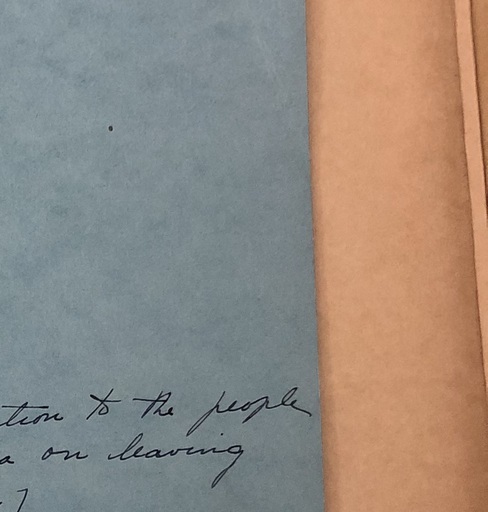 tion to the people
a on leaving
]